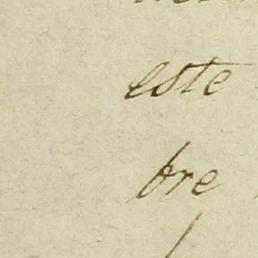 este
bre